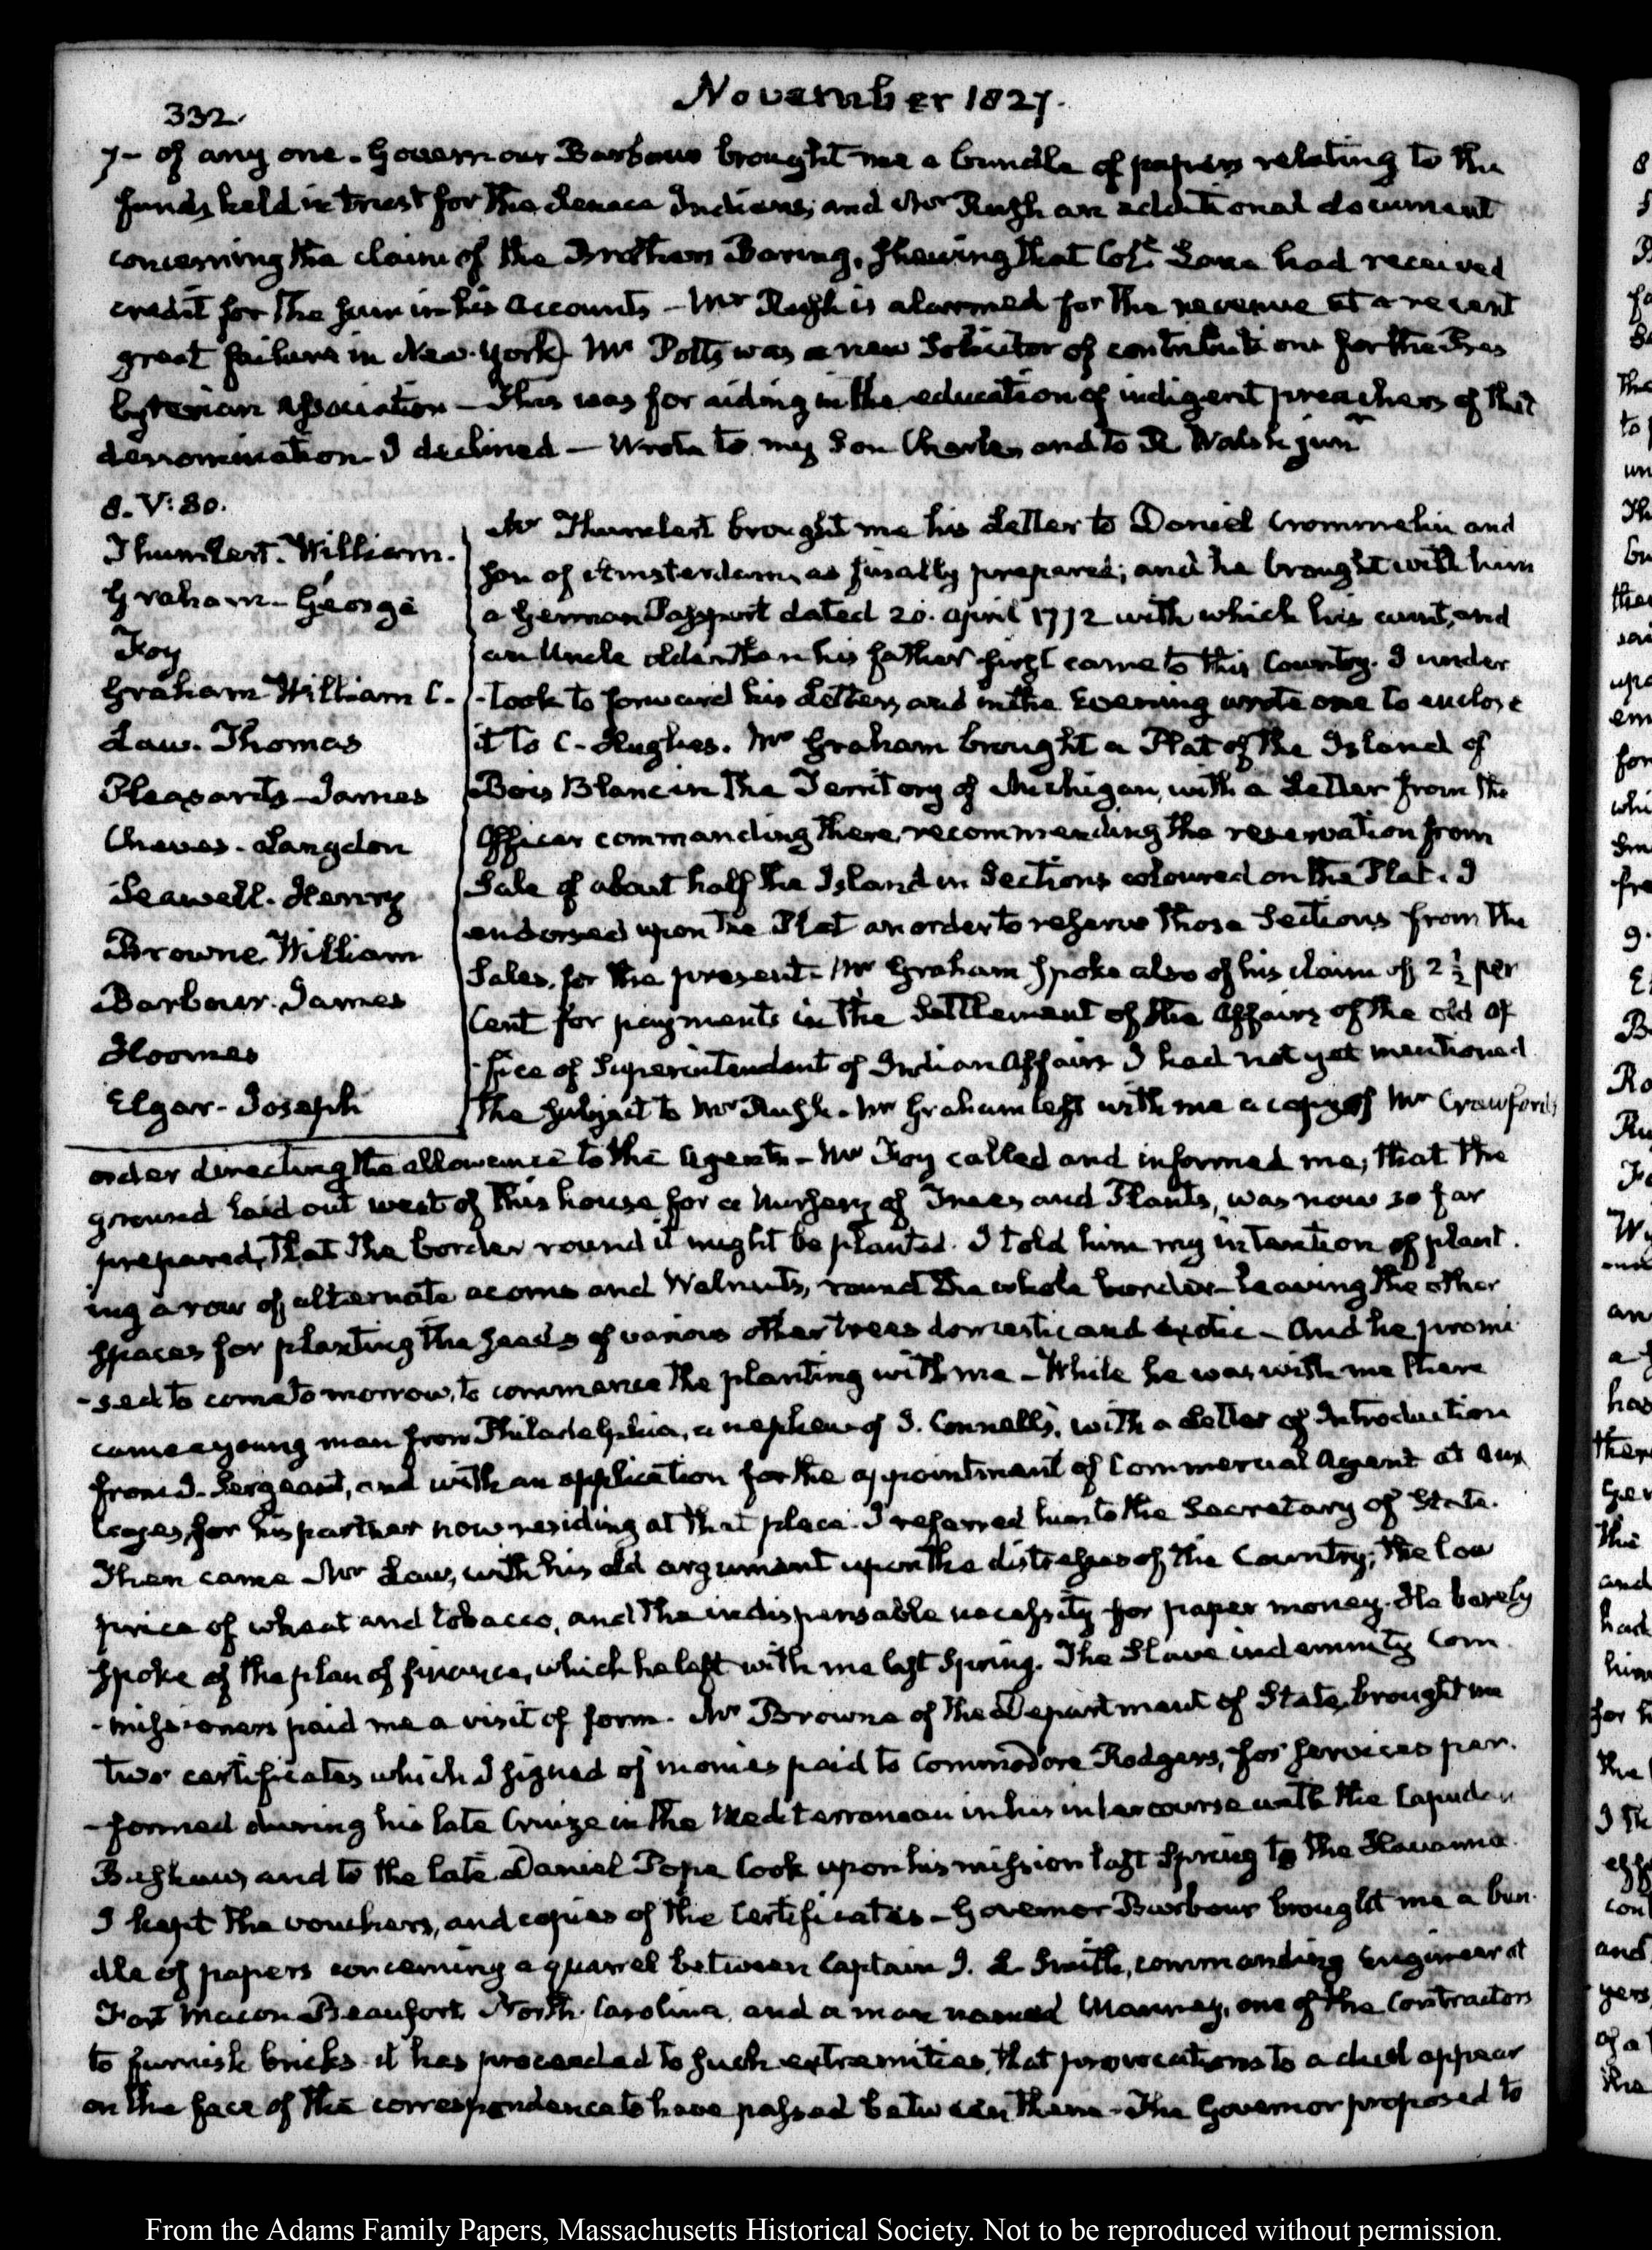 332.
November 1827.
7— of any one. Governour Barbour brought me a bundle of papers relating to the
funds held in trust for the Seneca Indians; and Mr Rush an additional document
concerning the claim of the Brothers Baring, shewing that Coll. Lane had received
credit for the sum in his accounts — Mr Rush is alarmed for the revenue at a recent
great failure in New-York). Mr Potts was a new Solicitor of contributions for the Pres
byterian Association — This was for aiding in the education of indigent preachers of that
denomination. I declined — Wrote to my Son Charles and to R Walsh junr
8. V:30.
Thumlert. William.
Graham. George
Foy
Graham William C.
Law. Thomas
Pleasants. James
Cheves. Langdon
Seawell. Henry
Browne. William
Barbour. James
Hoomes
Elgar. Joseph
Mr Thumlert brought me his Letter to Daniel Crommelin and
Son of Amsterdam, as finally prepared; and he brought with him
a German Passport dated 20. April 1772 with which his aunt, and
an Uncle older than his father first came to this Country. I under
-took to forward his Letters, and in the Evening wrote one to enclose
it to C. Hughes. Mr Graham brought a Plat of the Island of
Bois Blanc in the Territory of Michigan, with a Letter from the
Officer commanding there, recommending the reservation from
Sale of about half the Island in Sections coloured on the Plat. I
endorsed upon the Plat an order to reserve those Sections from the
Sales, for the present. Mr Graham spoke also of his claim of 2 ½ per
Cent for payments in the Settlement of the Affairs of the old Of
-fice of Superintendent of Indian Affairs I had not yet mentioned
the subject to Mr Rush. Mr Graham left with me a copy of Mr Crawford's
order directing the allowance to the Agents — Mr Foy called and informed me, that the
ground laid out west of this house for a Nursery of Trees and Plants, was now so far
prepared, that the border round it might be planted. I told him my intention of plant.
ing a row of alternate acorns and Walnuts, round the whole border — leaving the other
spaces for planting the seeds of various other trees domestic and exotic — And he promi
-sed to come to morrow, to commence the planting with me — While he was with me there
came a young man from Philadelphia, a nephew of J. Connell's, with a Letter of Introduction
from J. Sergeant, and with an application for the appointment of Commercial Agent at Aux
Cayes, for his partner now residing at that place. I referred him to the Secretary of State.
Then came Mr Law, with his old argument upon the distresses of the Country; the low
price of wheat and tobacco, and the indispensable necessity for paper money. He barely
spoke of the plan of finance, which he left with me last Spring. The Slave indemnity Com
-missioners paid me a visit of form. Mr Browne of the Department of State, brought me
two certificates which I signed of monies paid to Commodore Rodgers, for services per.
-formed during his late Cruize in the Mediterranean in his intercourse with the Capudan
Bashaw, and to the late Daniel Pope Cook upon his mission last Spring to the Havanna.
I kept the vouchers, and copies of the Certificates — Governor Barbour brought me a bun.
dle of papers concerning a quarrel between Captain J. L Smith, commanding Engineer at
Fort Macon Beaufort North-Carolina, and a man named Manney, one of the Contractors
to furnish bricks. it has proceeded to such extremities, that provocations to a duel appear
on the face of the correspondence to have passed between them. The Governor proposed to
From the Adams Family Papers, Massachusetts Historical Society. Not to be reproduced without permission.